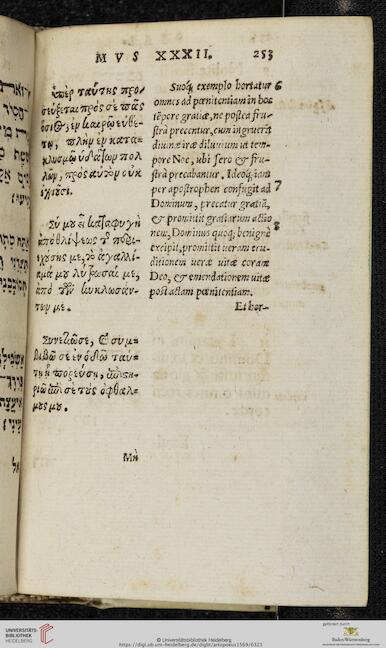 MVS XXXII. 253
ὑπὲρ ταύτης προ-
σεύξεται πρὸς σὲ πᾶς
ὅσιος, ἐν καιρῷ εὐθέ-
τῳ, πλὴν ἐν κατα-
κλυσμῷ ὑδάτων πολ-
λῶν, πρὸς αὐτὸν οὐκ
ἐγγιοῦσι.
Σύ μου εἶ καταφυγὴ
ἀπὸ θλίψεως τ περι-
εχούσης με, τὸ ἀγαλλί-
αμά μου λύτρωσαί με,
ἀπὸ τῶν κυκλωσάν-
των με.
Συνετιῶσε, & συμ-
βιβῶ σε ἐν ὁδῷ ταύ-
τῃ ᾗ πορεύσῃ, ἐπιστη-
ριῶ ἐπὶ σὲ τοὺς ὀφθαλ-
μούς μου.
Μὴ
Suoq; exemplo hortatur 6
omnes ad pœnitentiam in hoc
tẽpore gratiæ, ne postea fru-
strà precentur, cum ingruerit
diuinæ iræ diluuium ut tem-
pore Noe, ubi sero & fru-
strà precabantur. Ideoq; iam
per apostrophen confugit ad 7
Dominum, precatur gratiã,
& promittit gratiarum actio
nem, Dominus quoq; benignè 8
excipit, promittit ueram eru-
ditionem ueræ uitæ coram
Deo, & emendationem uitæ
post actam pœnitentiam.
Et hor-
UNIVERSITÄTS-
BIBLIOTHEK
HEIDELBERG
© Universitätsbibliothek Heidelberg
https://digi.ub.uni-heidelberg.de/diglit/artopoeus1569/0321
gefördert durch
Baden-Württemberg